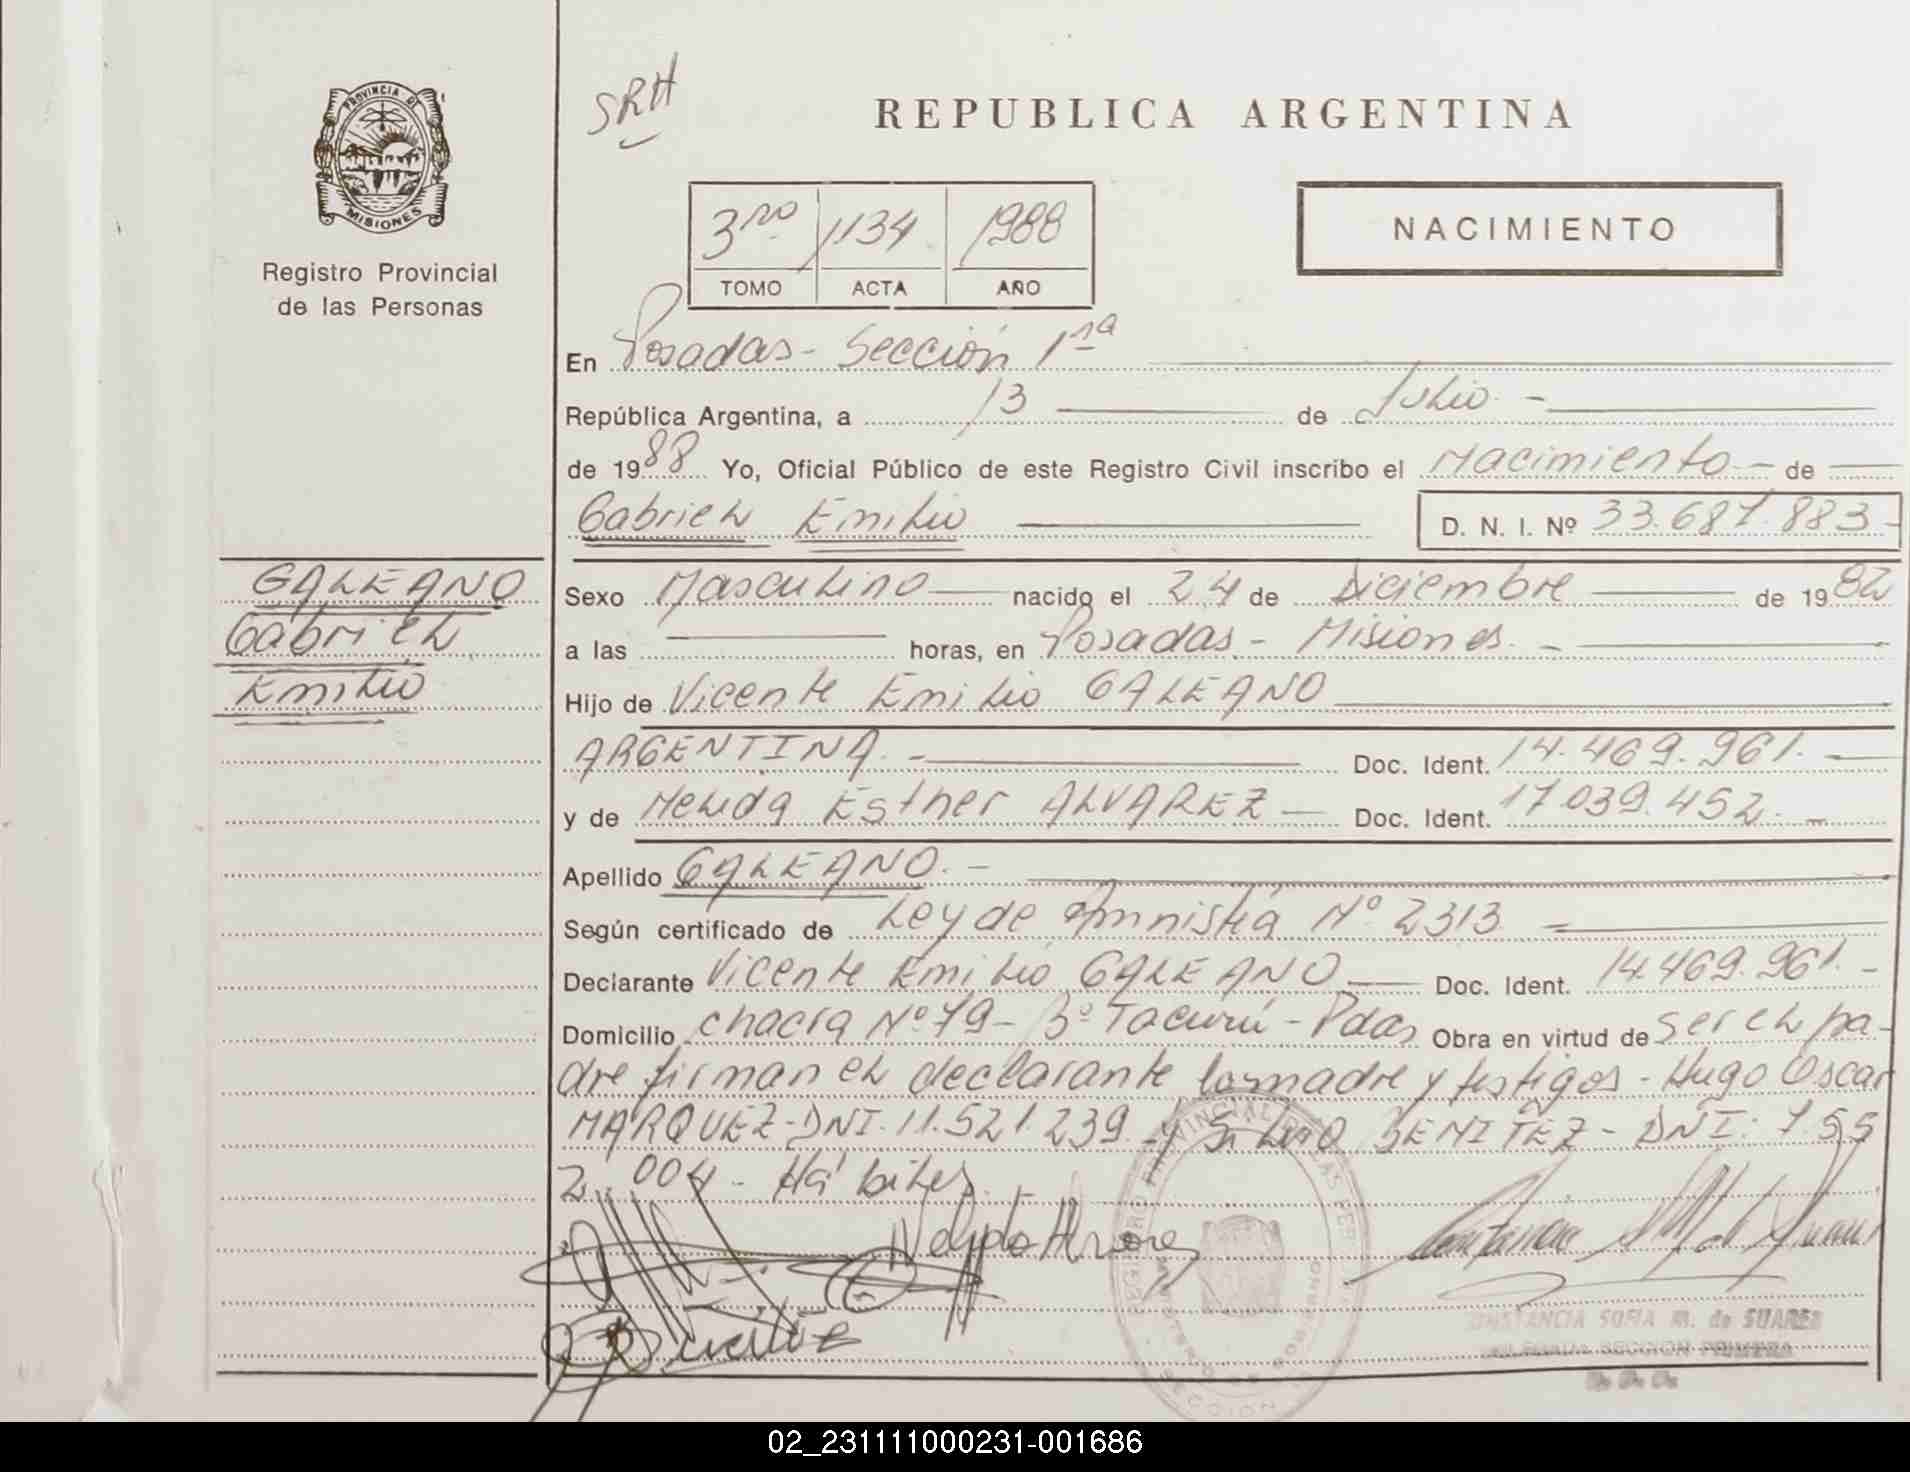 PROVINCIA DE
MISIONES
Registro Provincial
de las Personas
GALEANO
Gabriel
Emilio
SRH
REPUBLICA ARGENTINA
3ro 1134 1988
TOMO ACTA AÑO
NACIMIENTO
En Posadas - Sección 1ra
República Argentina, a 13 de Julio. -
de 1988 Yo, Oficial Público de este Registro Civil inscribo el Nacimiento - de
Gabriel Emilio D. N. I. Nº 33.687.883 -
Sexo Masculino nacido el 24 de Diciembre de 1982
a las horas, en Posadas - Misiones. -
Hijo de Vicente Emilio GALEANO
ARGENTINA. - Doc. Ident. 14.469.961. -
y de Nelida Esther ALVAREZ - Doc. Ident. 17.039.452. -
Apellido GALEANO. -
Según certificado de Ley de Amnistía Nº 2313
Declarante Vicente Emilio GALEANO Doc. Ident. 14.469.961. -
Domicilio chacra Nº 79 - Bº Tacurú - Pdas Obra en virtud de ser el pa-
dre firman el declarante la madre y testigos - Hugo Oscar
MARQUEZ - DNI. 11.521.239 - y Silvio BENITEZ - DNI: 7.55
2.004 - Hábiles. -
Nelida Alvarez
CONSTANCIA SOFIA M. de SUAREZ
DELEGADA SECCION PRIMERA
02_231111000231-001686